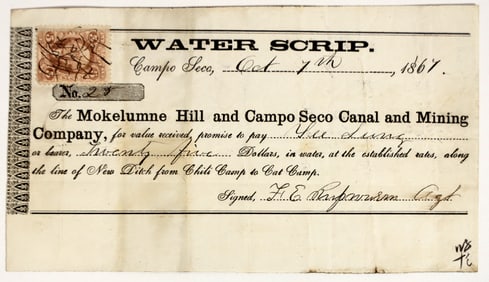 WATER SCRIP.
Campo Seco, Oct 7th, 1867.
No. 25
The Mokelumne Hill and Campo Seco Canal and Mining
Company, for value received, promise to pay
or bearer, twenty five Dollars, in water, at the established rates, along
the line of New Ditch from Chili Camp to Cat Camp.
Signed, F E Agt